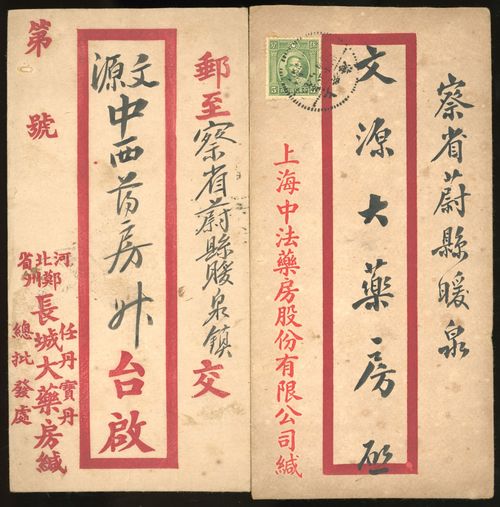 察省蔚縣暖泉
文源大藥房啟
上海中法藥房股份有限公司緘
郵至察省蔚縣暖泉鎮交
文源中西药房
台啟
第 號
河北省鄭州
任丹寶丹
長城大藥房緘
總批發處